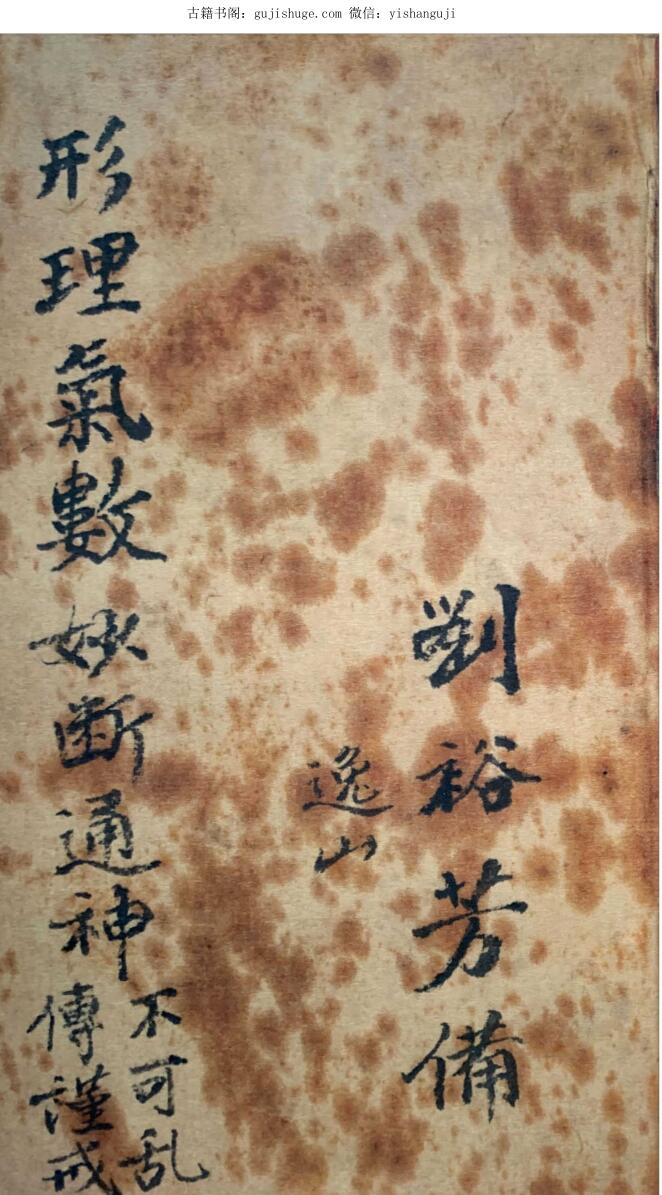 古籍书阁：gujishuge.com 微信：yishanguji
劉裕芳備
逸山
形理氣數妙断通神
不可乱
傳謹戒